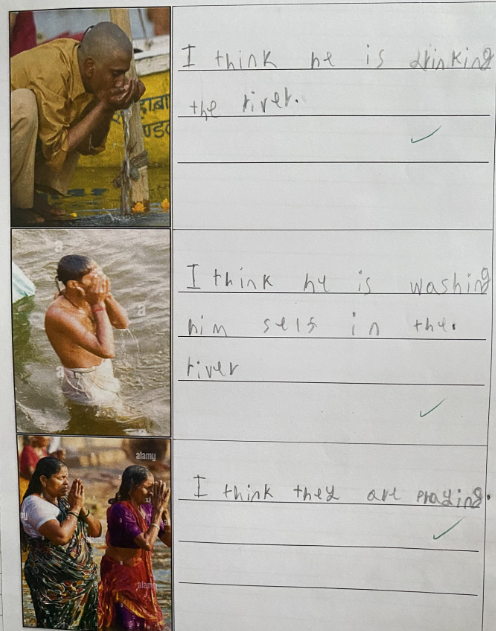 I think he is drinking
the river.
I think he is washing
him sels in the.
river
I think they are praying.
alamy
a
alamy